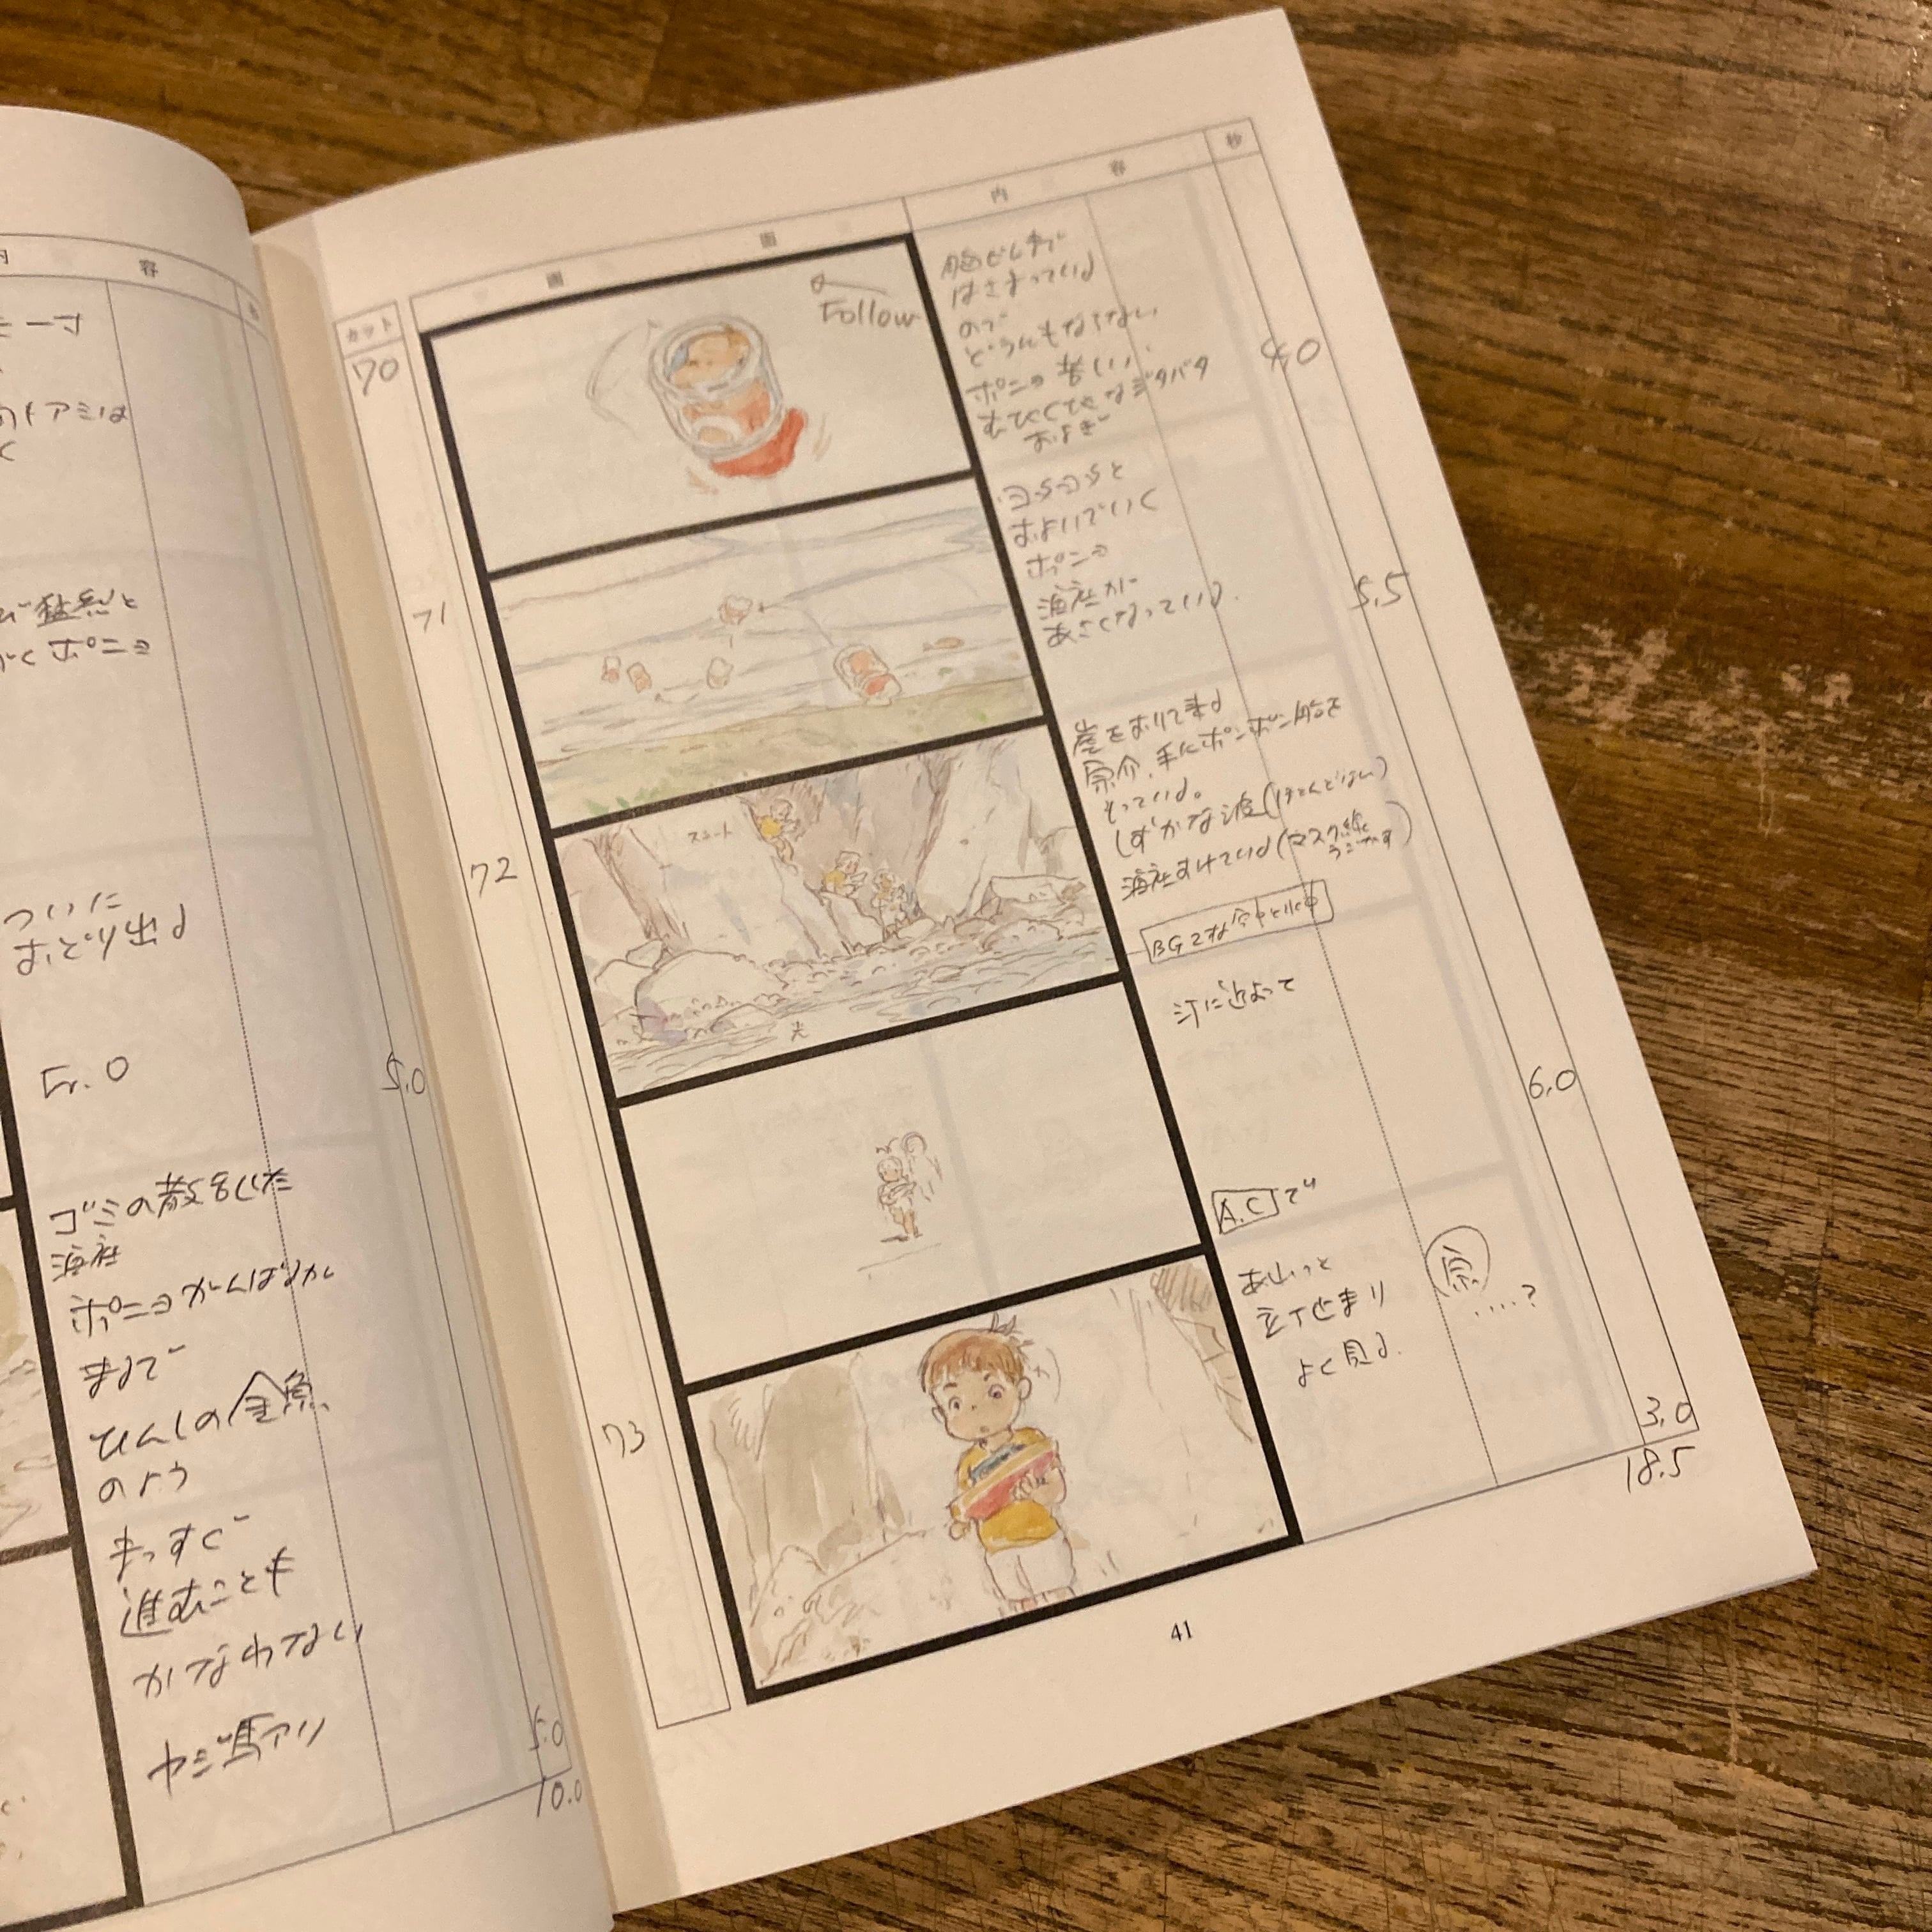 容
一寸
アミは
く
猛烈と
く ポニョ
ついに
おどり出る
Fr. O
5.0
ゴミの散乱した
海底
ポニョがんばるが
まるで
ひんしの金魚
のよう
まっすぐ
進むことも
かなわない
ヤジ馬アリ
5.0
10.0
カット
画 面
内 容
秒
70
Follow
胸ビレまで
はさまっている
ので
どうにもならない
ポニョ 苦しい
むちゃくちゃなジタバタ
およぎ
4.0
71
ヨタヨタと
およいでいく
ポニョ
海底が
あさくなっている.
5.5
72
スタート
光
崖をおりて来る
宗介、手にポンポン船を
もっている。
しずかな波(ほとんどない)
海底すけている(マスク絵
うごかす)
BGでな 空中と水中
汀に近よって
6.0
A.C で
73
あれっと
立ち止まり
よく見る.
宗
....?
3.0
18.5
41